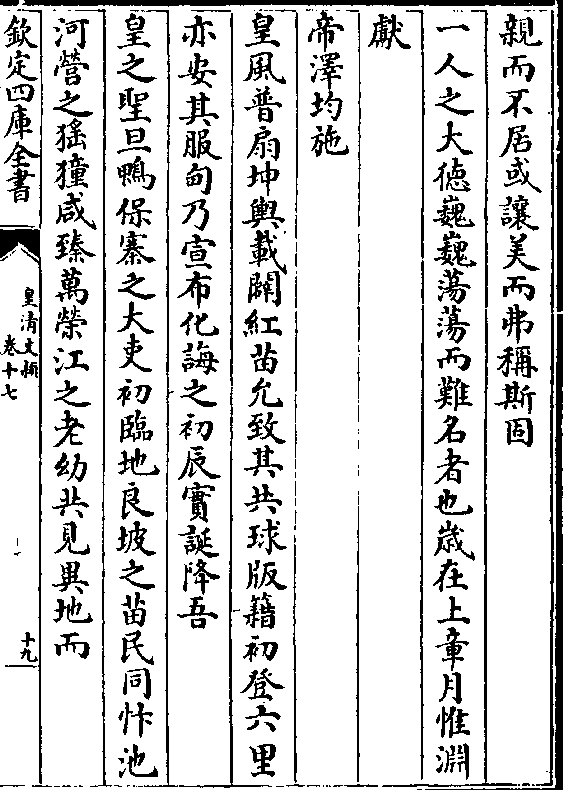 親而不居或讓美而弗稱斯固
一人之大德巍巍蕩蕩而難名者也歲在上章月惟淵
獻
帝澤均施
皇風普扇坤輿載闢紅苗允致其共球版籍初登六里
亦安其服甸乃宣布化誨之初辰實誕降吾
皇之聖旦鴨保寨之大吏初臨地良坡之苗民同忭池
河營之猺獞咸臻萬榮江之老幼共見異地而
欽定四庫全書
皇清文穎
卷十七
十九